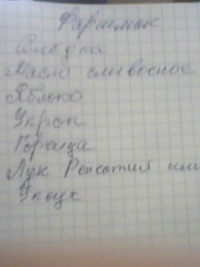 Форшмак
Сельдь
Масло сливочное
Яблоко
Укроп
Горчица
Лук Репчатый или
Уксус